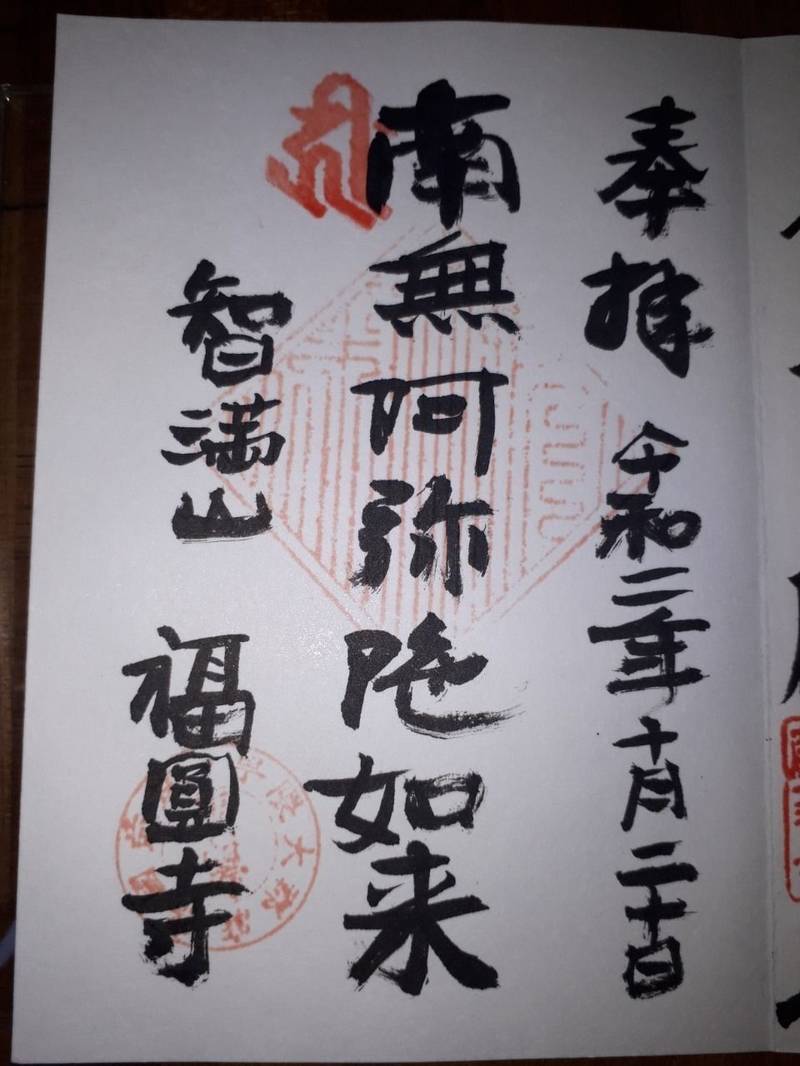 奉拝 令和二年十月二十日
南無阿弥陀如来
智満山 福圓寺